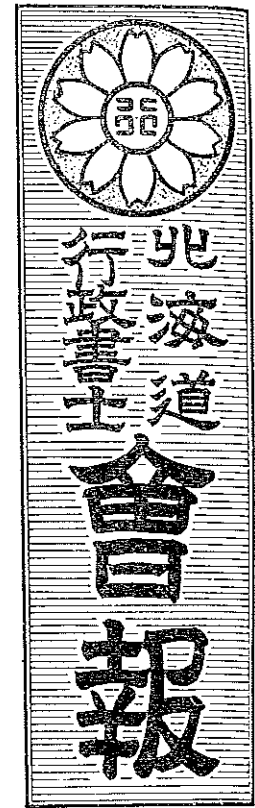 行
北海道
行政書士
會報